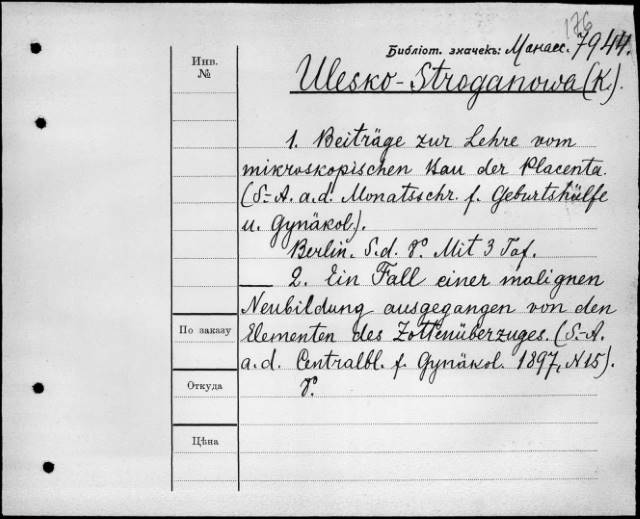 176
Библіот. значекъ: Манасс. 7944.
Инв.
№
Ulesko-Stroganowa (K.).
1. Beiträge zur Lehre vom
mikroskopischen Bau der Placenta.
(S.-A. a. d. Monatsschr. f. Geburtshülfe
u. Gynäkol.).
Berlin. S. d. 8°. Mit 3 Taf.
2. Ein Fall einer malignen
Neubildung ausgegangen von den
По заказу
Elementen des Zottenüberzuges. (S.-A.
a. d. Centralbl. f. Gynäkol. 1897, N 15).
Откуда
8°.
Цѣна